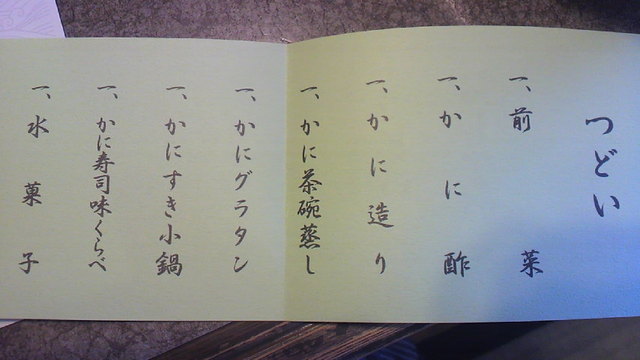 つどい
一、前菜
一、かに酢
一、かに造り
一、かに茶碗蒸し
一、かにグラタン
一、かにすき小鍋
一、かに寿司味くらべ
一、水菓子